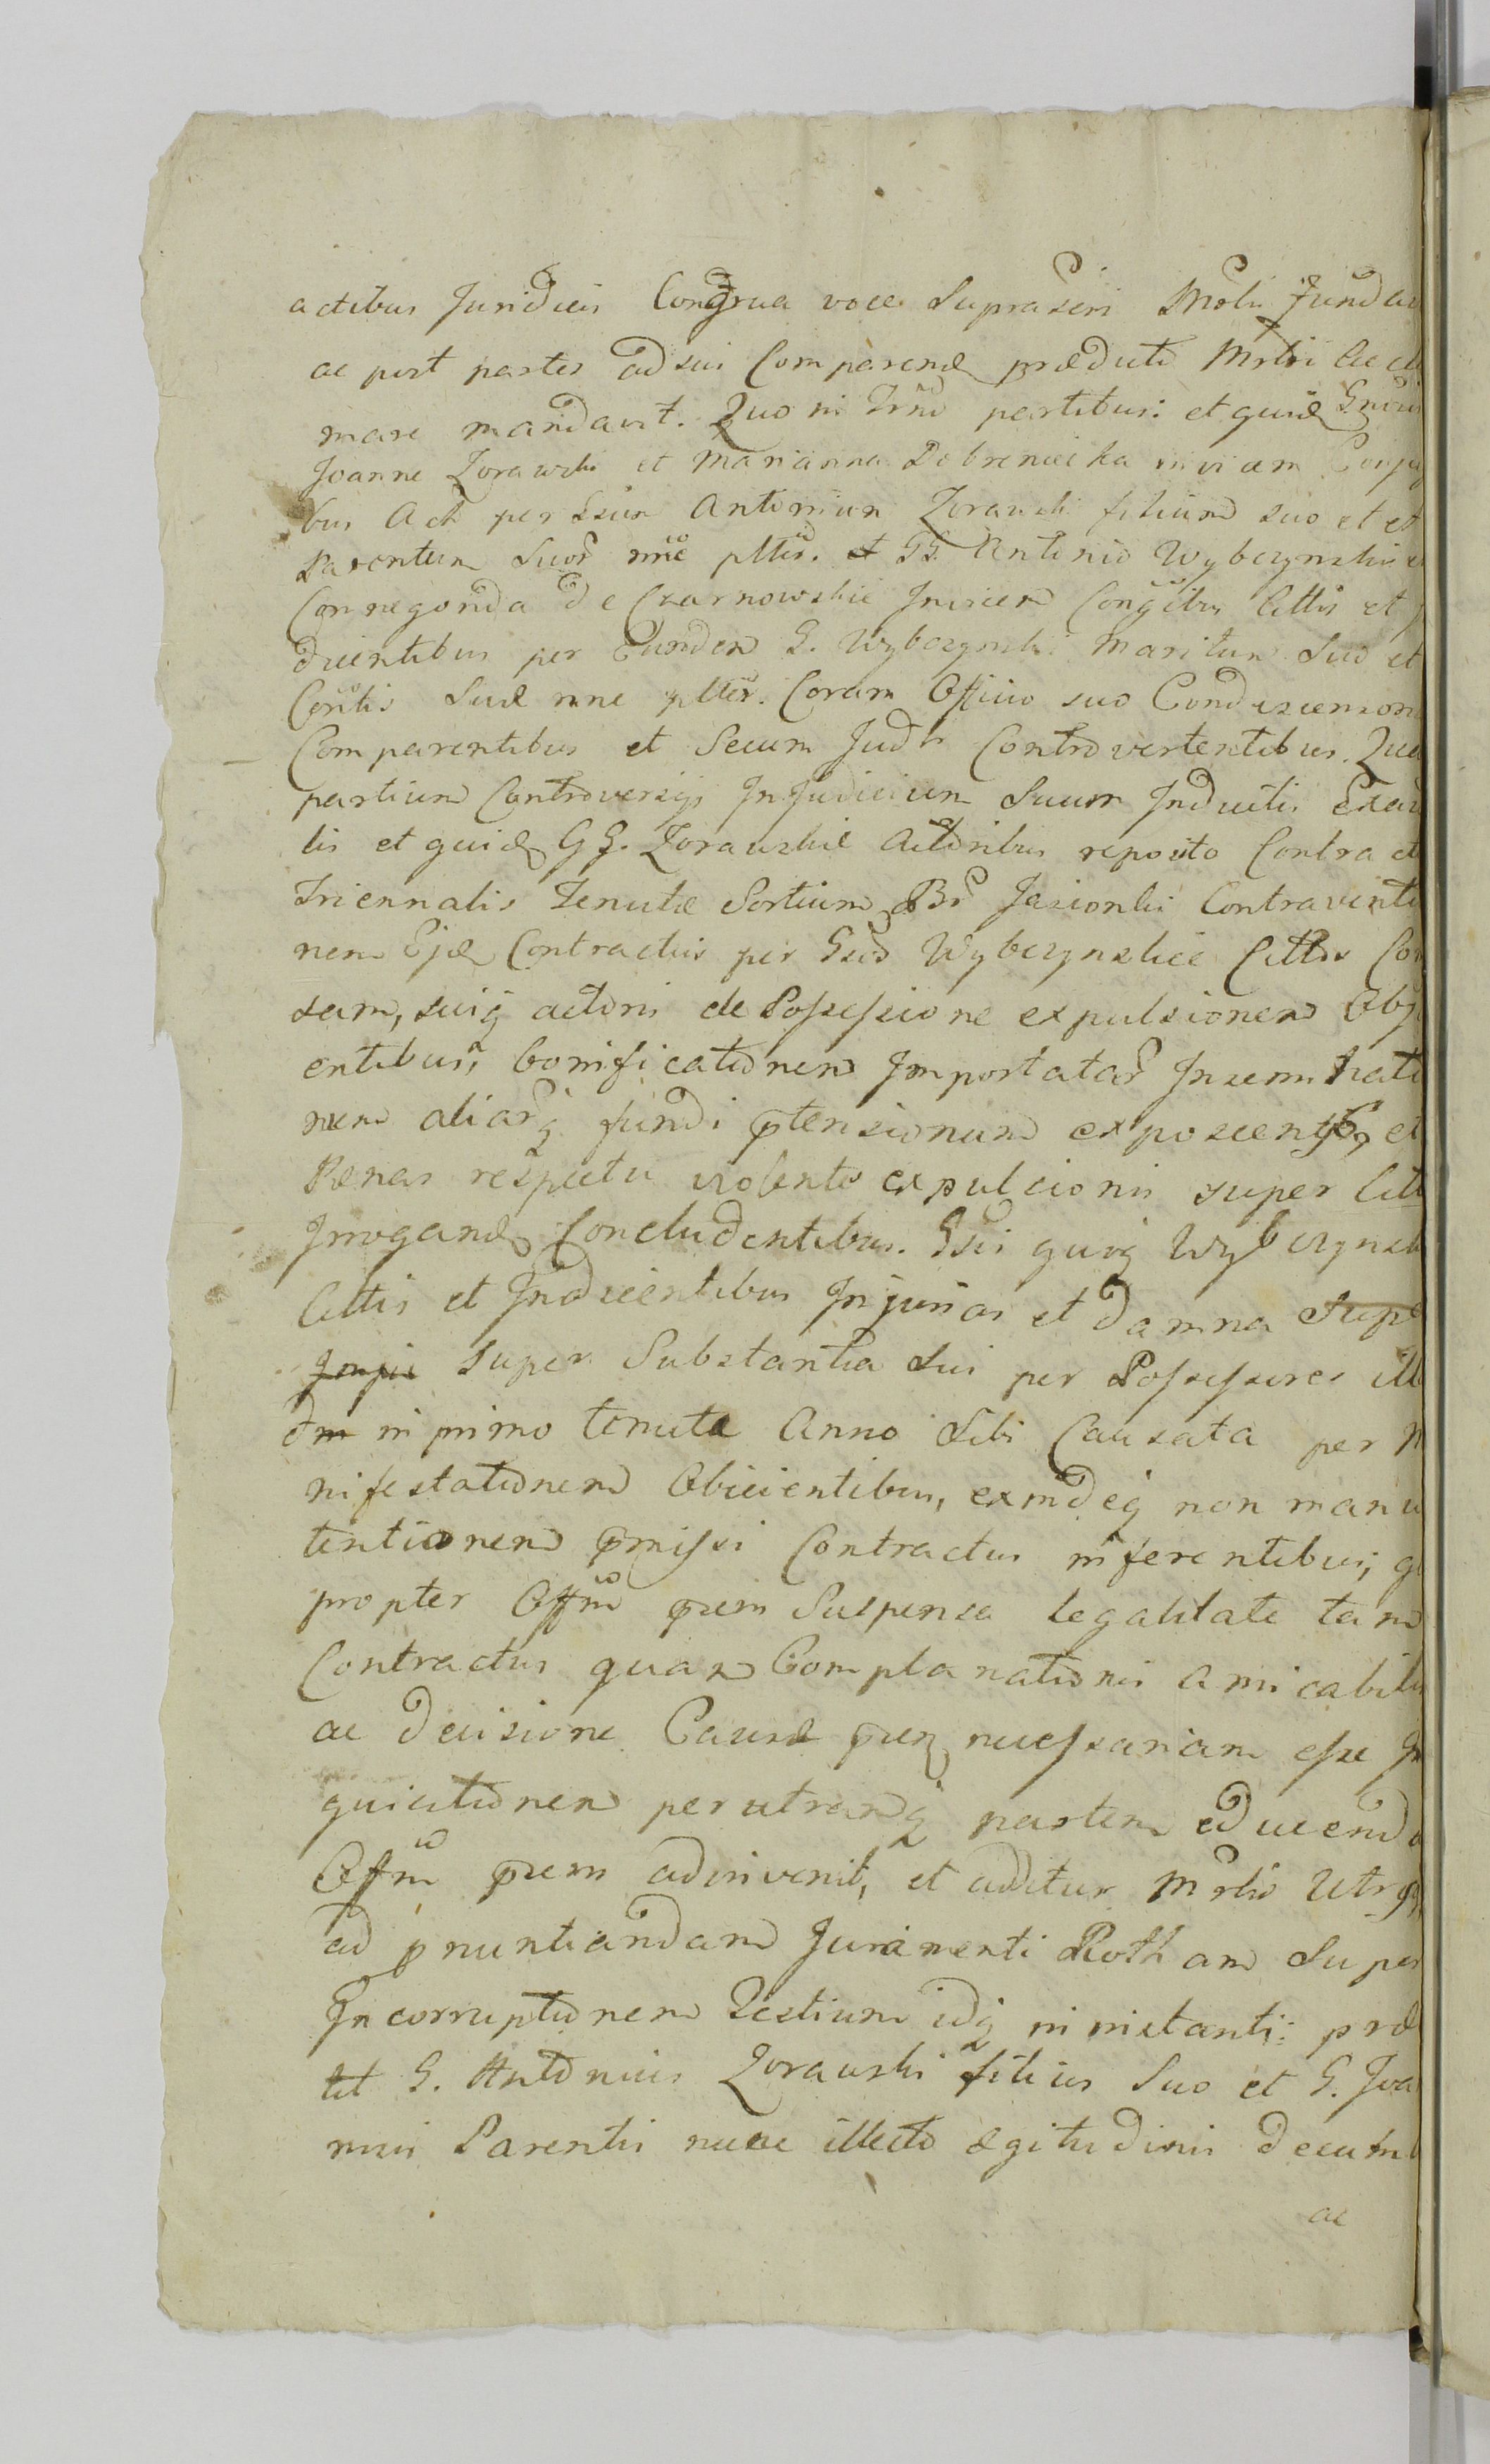 actibus Juridicis Congrua voce Suprascri Mrli fundav
ac post partes ad sui Comparend praeducti Mrlri accla
mare mandavit. Quo in Trno partibus: et quid Gnrus
Joanne Zorawski et Marianna Dobreniecka invicem Conju
bus Act per Gsum Antonium Zorawski filium suo et et
Parentum Suor nnie pltter. et GG. Antonio Wybczynskie
Connegonda de Czarnowskie Invicem Congibus Cittis et
dicentibus per Eundem G. Wybczynski Maritum Suo et
Contis Suae nne pltter. Coram Officio suo Condescensori
Comparentibus et Secum Judlr Controvertentibus. Qua
partium Controversijs In Judicium Suum Inductis Exau
tis et quid GG. Zorawskie Actoribus reposito Contra ct
Triennalis Tenutae Sortium Br Jasionki Contraventi
nem Ejd Contractus per Gsos Wybczynskie Cittos Co
sam, suiq actoris de Possessione expulsionem Obji
entibus, bonificationem Importatar Inseminati
nem aliarq fundi ptensionum exposcentib, et
Penas respectu violento expulsionis super Citt
Irrogand Concludentibus. Gsis quoq Wybczynski
Cittis et Indicentibus Injurias et damna supe
super Substantia Sui per Possessores ill
dm in primo tenutae Anno Sibi Causata per M
nifestationem Obicientibus, exindeq non manu
tentionem pmissi Contractus inferentibus, q
propter Offm pns Suspensa legalitate tam
Contractus quam Complanationis amicabilis
ac decisione Causae pns necessariam esse In
quisitionem per utramq partem educenda
Offm pns adinvenit, et additur Mrlis Utrq
ad pnuntiandam Juramenti Rotham Super
Incorruptionem Testium idq in instanti: prae
tit G. Antonius Zorawski filius Suo et G. Joa
nnis Parentis nunc illecto aegitudinis decumb
ac